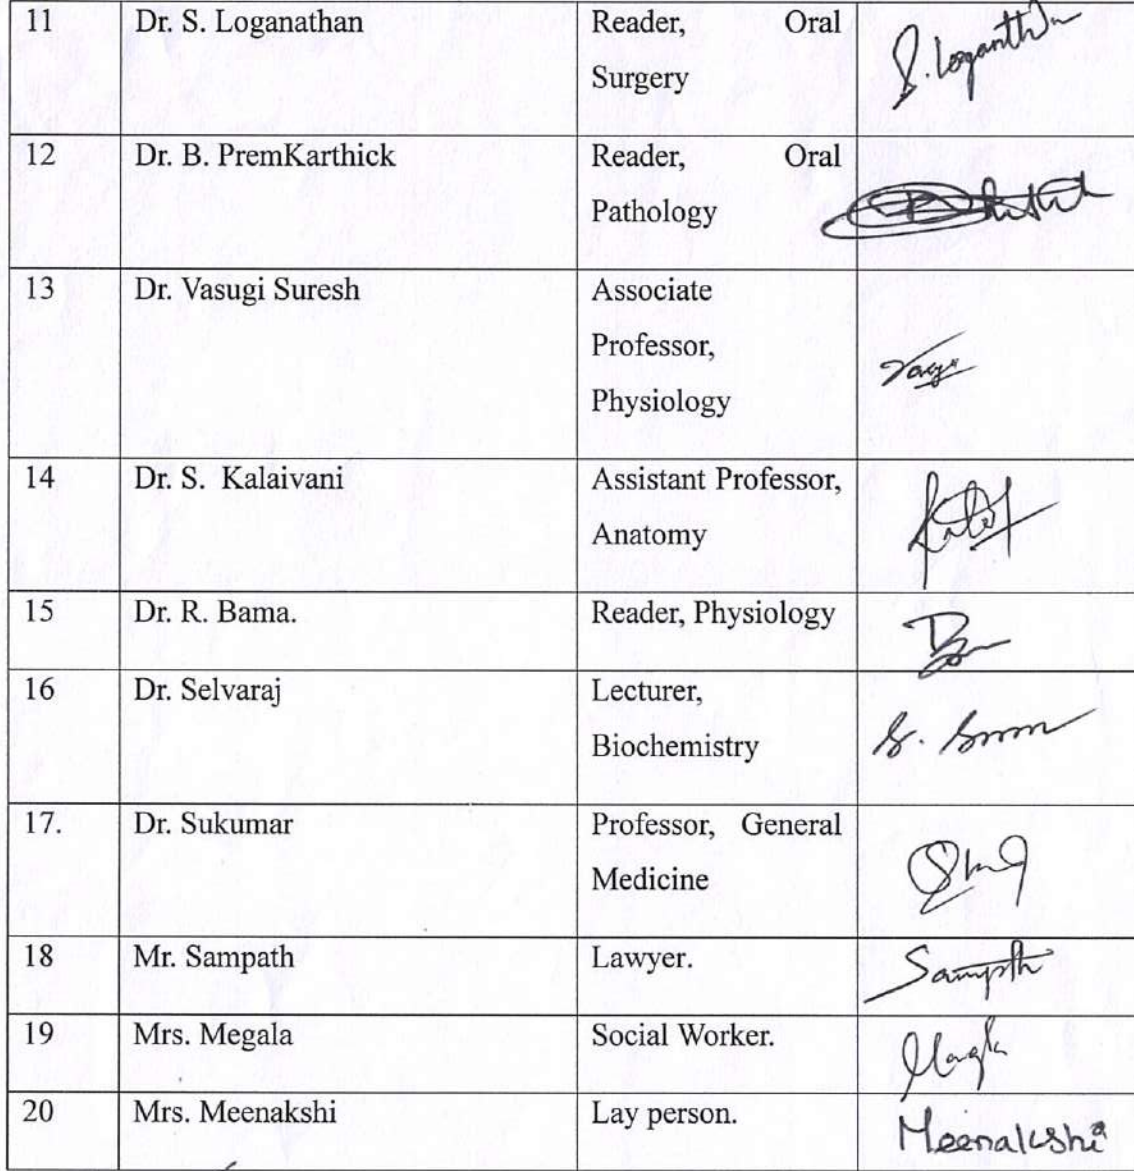 11 Dr. S. Loganathan Reader, Oral
Surgery
S. Loganathan
12 Dr. B. PremKarthick Reader, Oral
Pathology
13 Dr. Vasugi Suresh Associate
Professor,
Physiology
14 Dr. S. Kalaivani Assistant Professor,
Anatomy
15 Dr. R. Bama. Reader, Physiology
16 Dr. Selvaraj Lecturer,
Biochemistry
17. Dr. Sukumar Professor, General
Medicine
18 Mr. Sampath Lawyer.
Sampath
19 Mrs. Megala Social Worker.
20 Mrs. Meenakshi Lay person.
Meenakshi